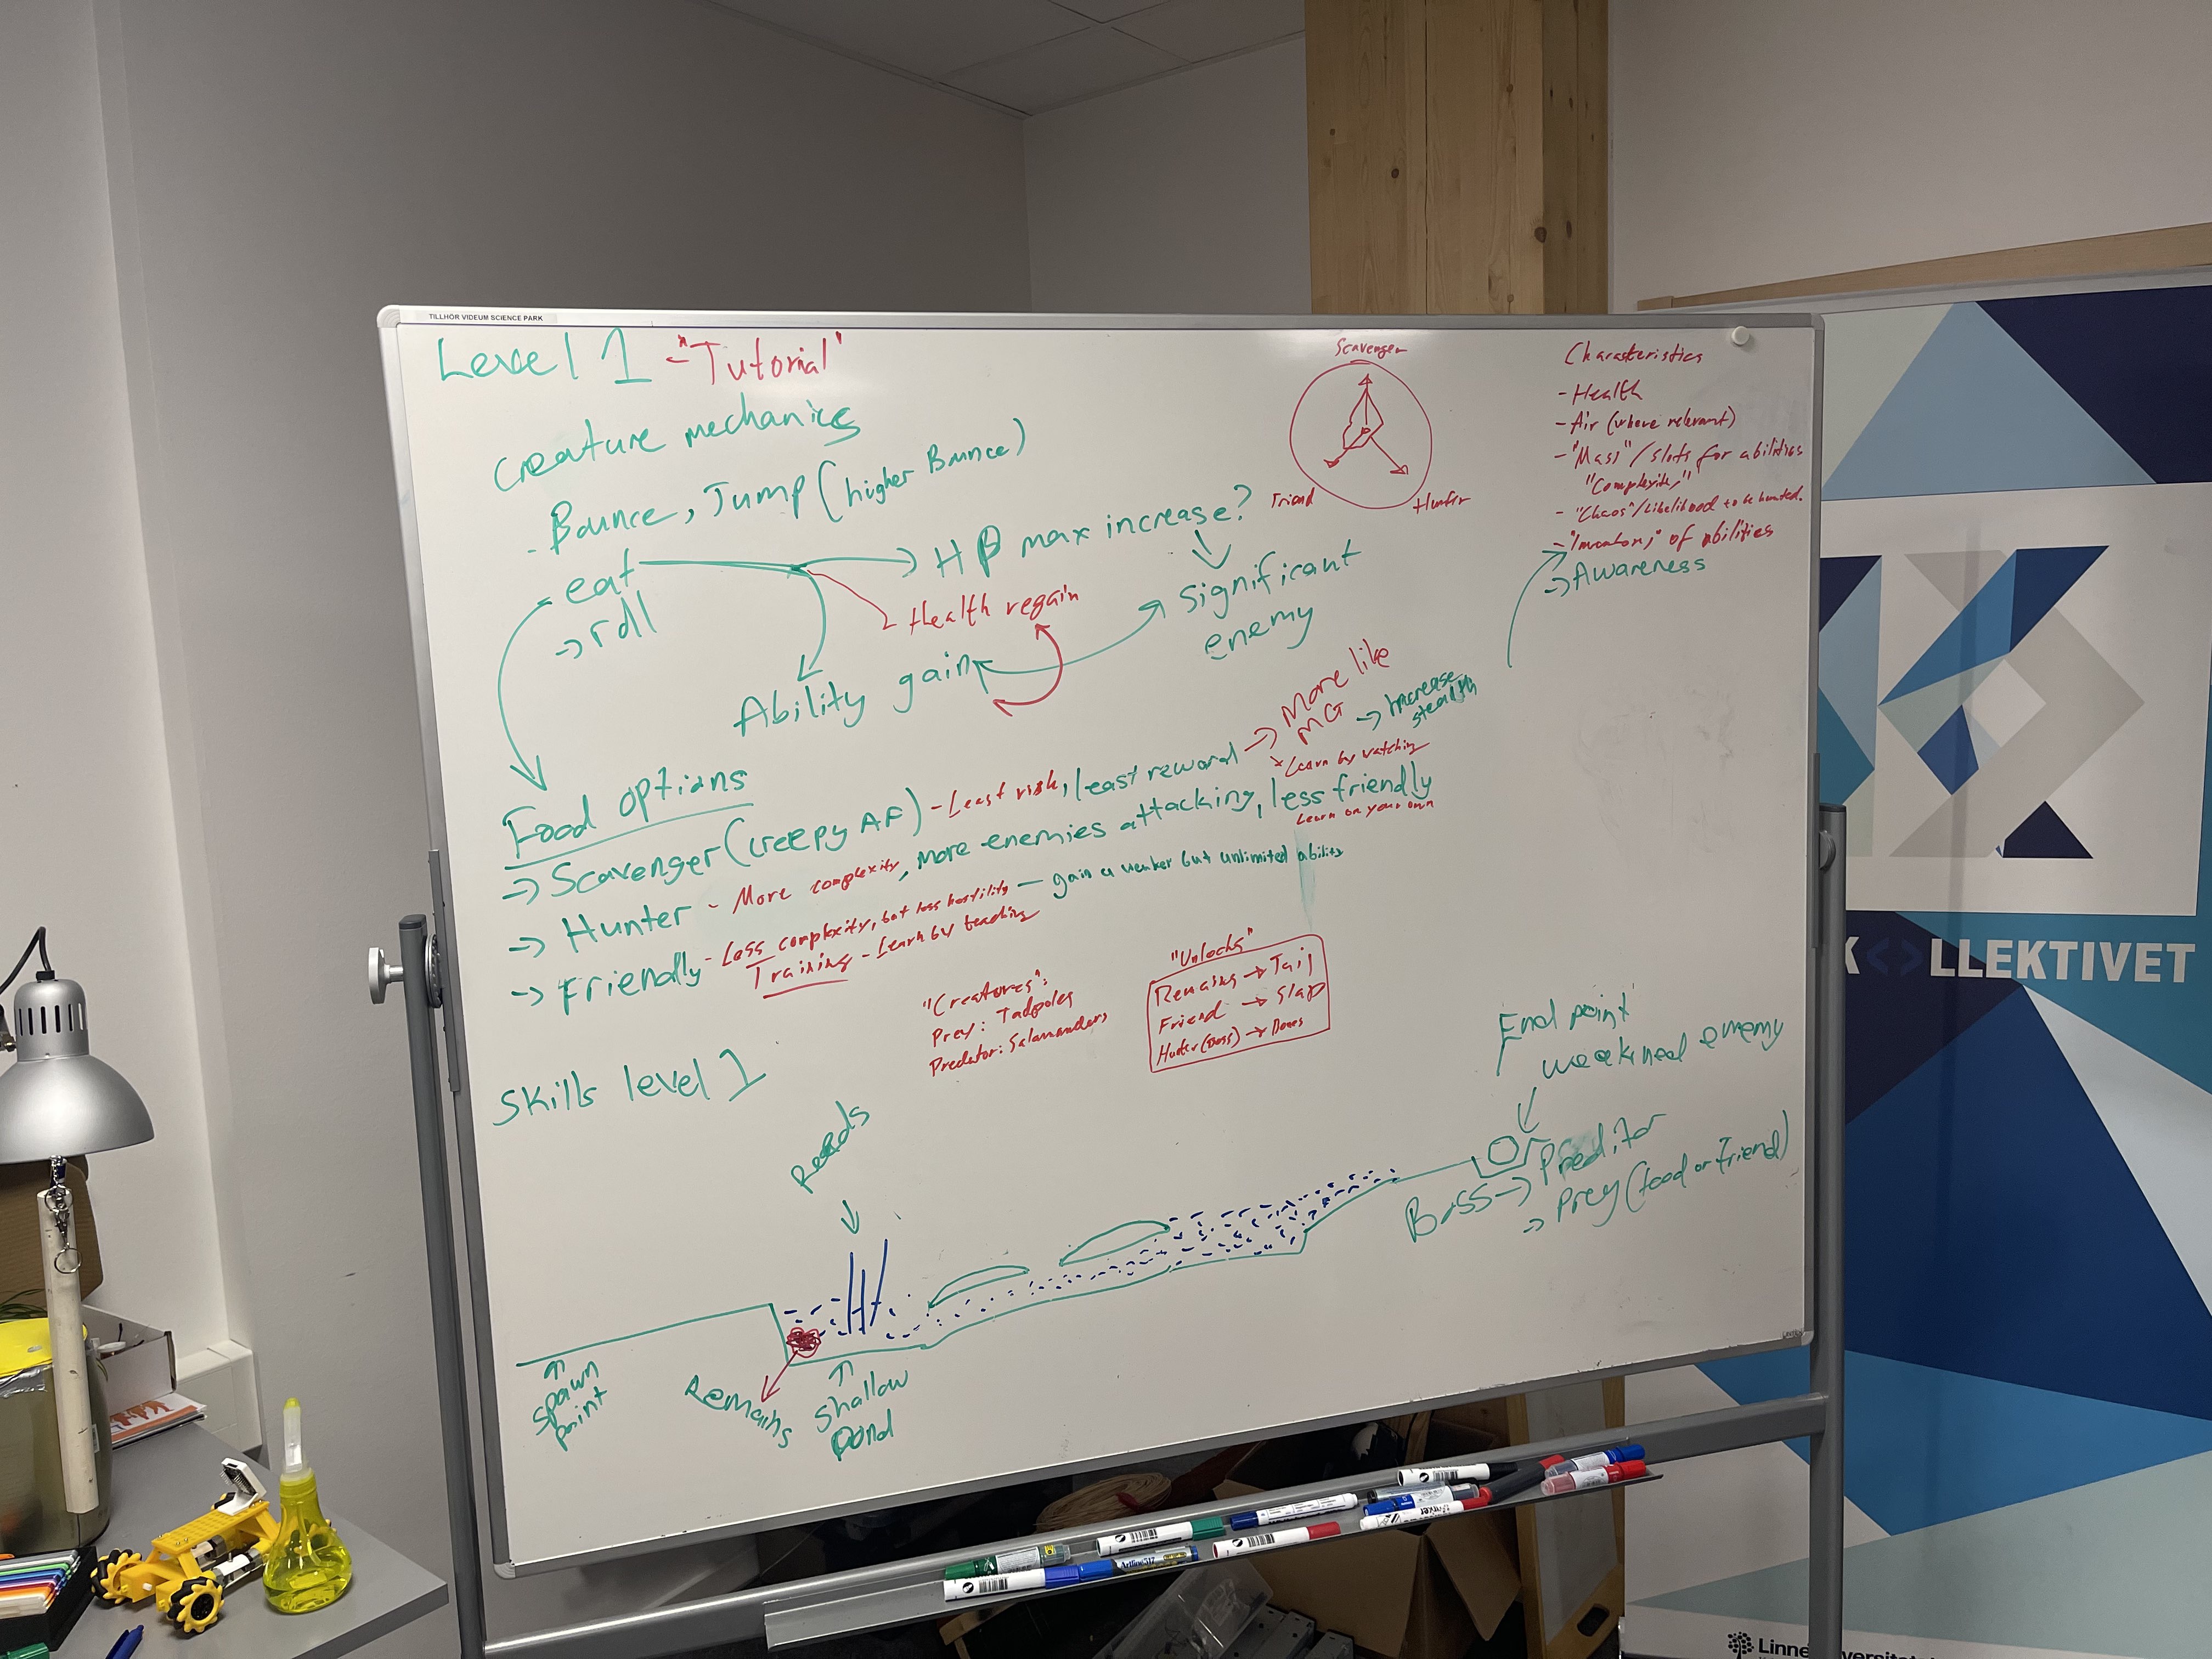 TILLHÖR VIDEUM SCIENCE PARK
Level 1 - "Tutorial"
Creature mechanics
- Bounce, Jump (higher Bounce)
- eat
-> roll
HP max increase?
Health regain
Ability gain
significant
enemy
Scavenger
Friend
Hunter
Characteristics
- Health
- Air (where relevant)
- "Mass"/slots for abilities
"Complexity"
- "Chaos"/Likelihood to be hunted.
- "Inventory" of abilities
-> Awareness
Food options
-> Scavenger (creepy AF) - Least risk, least reward -> More like MG -> Increase stealth
* Learn by watching
-> Hunter - More complexity, more enemies attacking, less friendly
Learn on your own
-> Friendly - Less complexity, but less hostility - gain a weaker but unlimited ability
Training - Learn by teaching
"Creatures":
Prey: Tadpoles
Predator: Salamanders
"Unlocks"
Remains -> Tail
Friend -> Slap
Hunter (Boss) ->
Skills level 1
Reeds
End point
weakened enemy
Boss -> Preditor
-> Prey (food or Friend)
spawn
point
Remains
shallow
pond
K<>LLEKTIVET
Artline 517